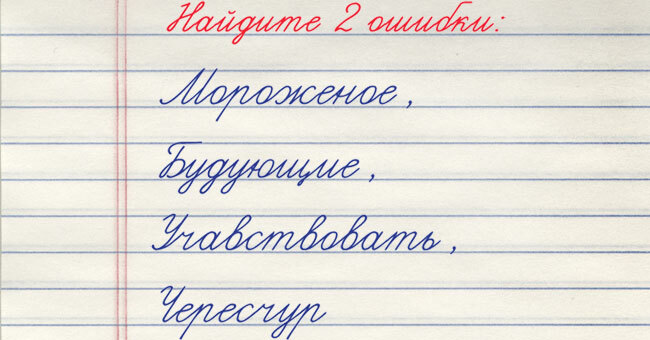 Найдите 2 ошибки:
Мороженое,
Будующие,
Учавствовать,
Чересчур